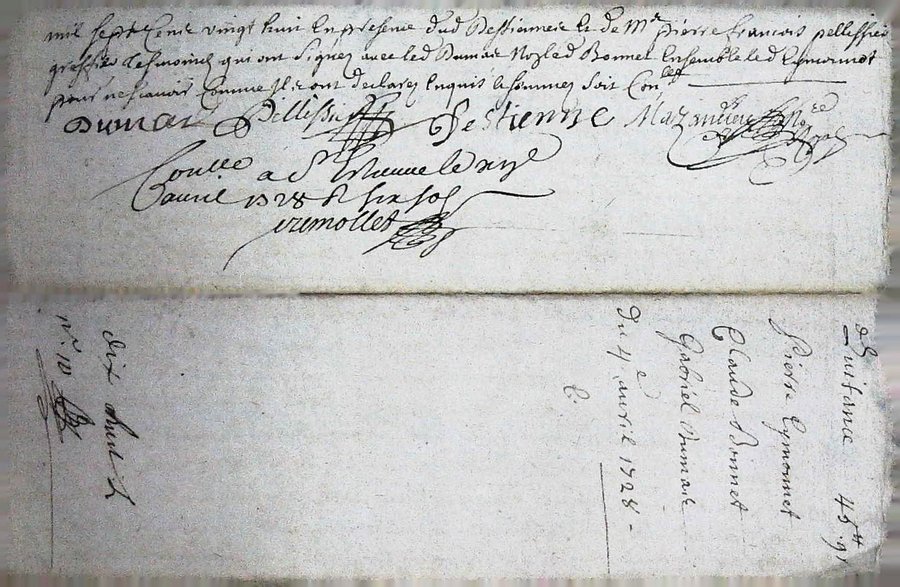 mil sept cens vingt huit En presence dud Destienne et de Me pierre francois pellissier
greffier tesmoins qui ont signez avec led Dumas Nore led Bonnet Ensemble led Eymonnet
pour ne scavoir comme ils ont declarez Enquis et sommez soit Conlle
Dumas Pellissier Destienne Maz

a St Estienne le
avril 1728 R six sols
tremollet
Quitance 45tt 9s
Pierre Eymonnet
Claude Bonnet
Gabriel Dumas
Du 4e avril 1728 -
dix huit
n° 10